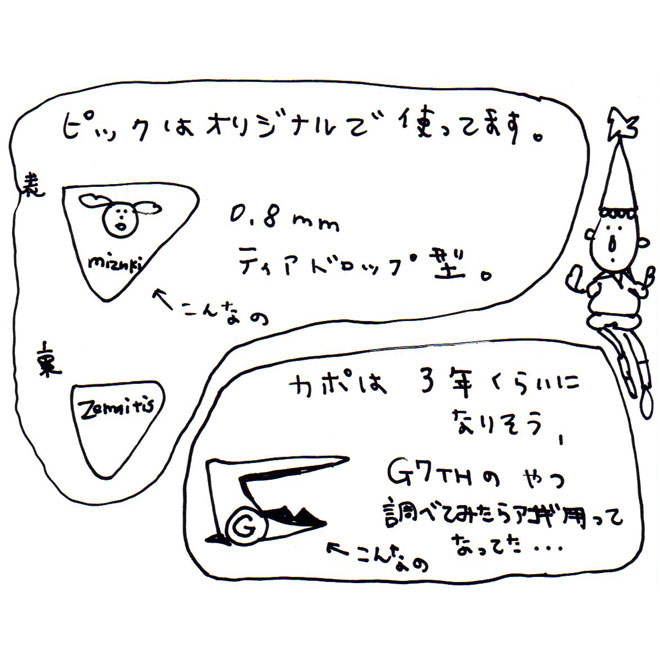 ピックはオリジナルで使ってます。
表
mizuki
0.8mm
ティアドロップ型。
←こんなの
裏
Zemaitis
カポは3年くらいに
なりそう、
G7THのやつ
調べてみたらアコギ用って
なってた・・・
G
←こんなの